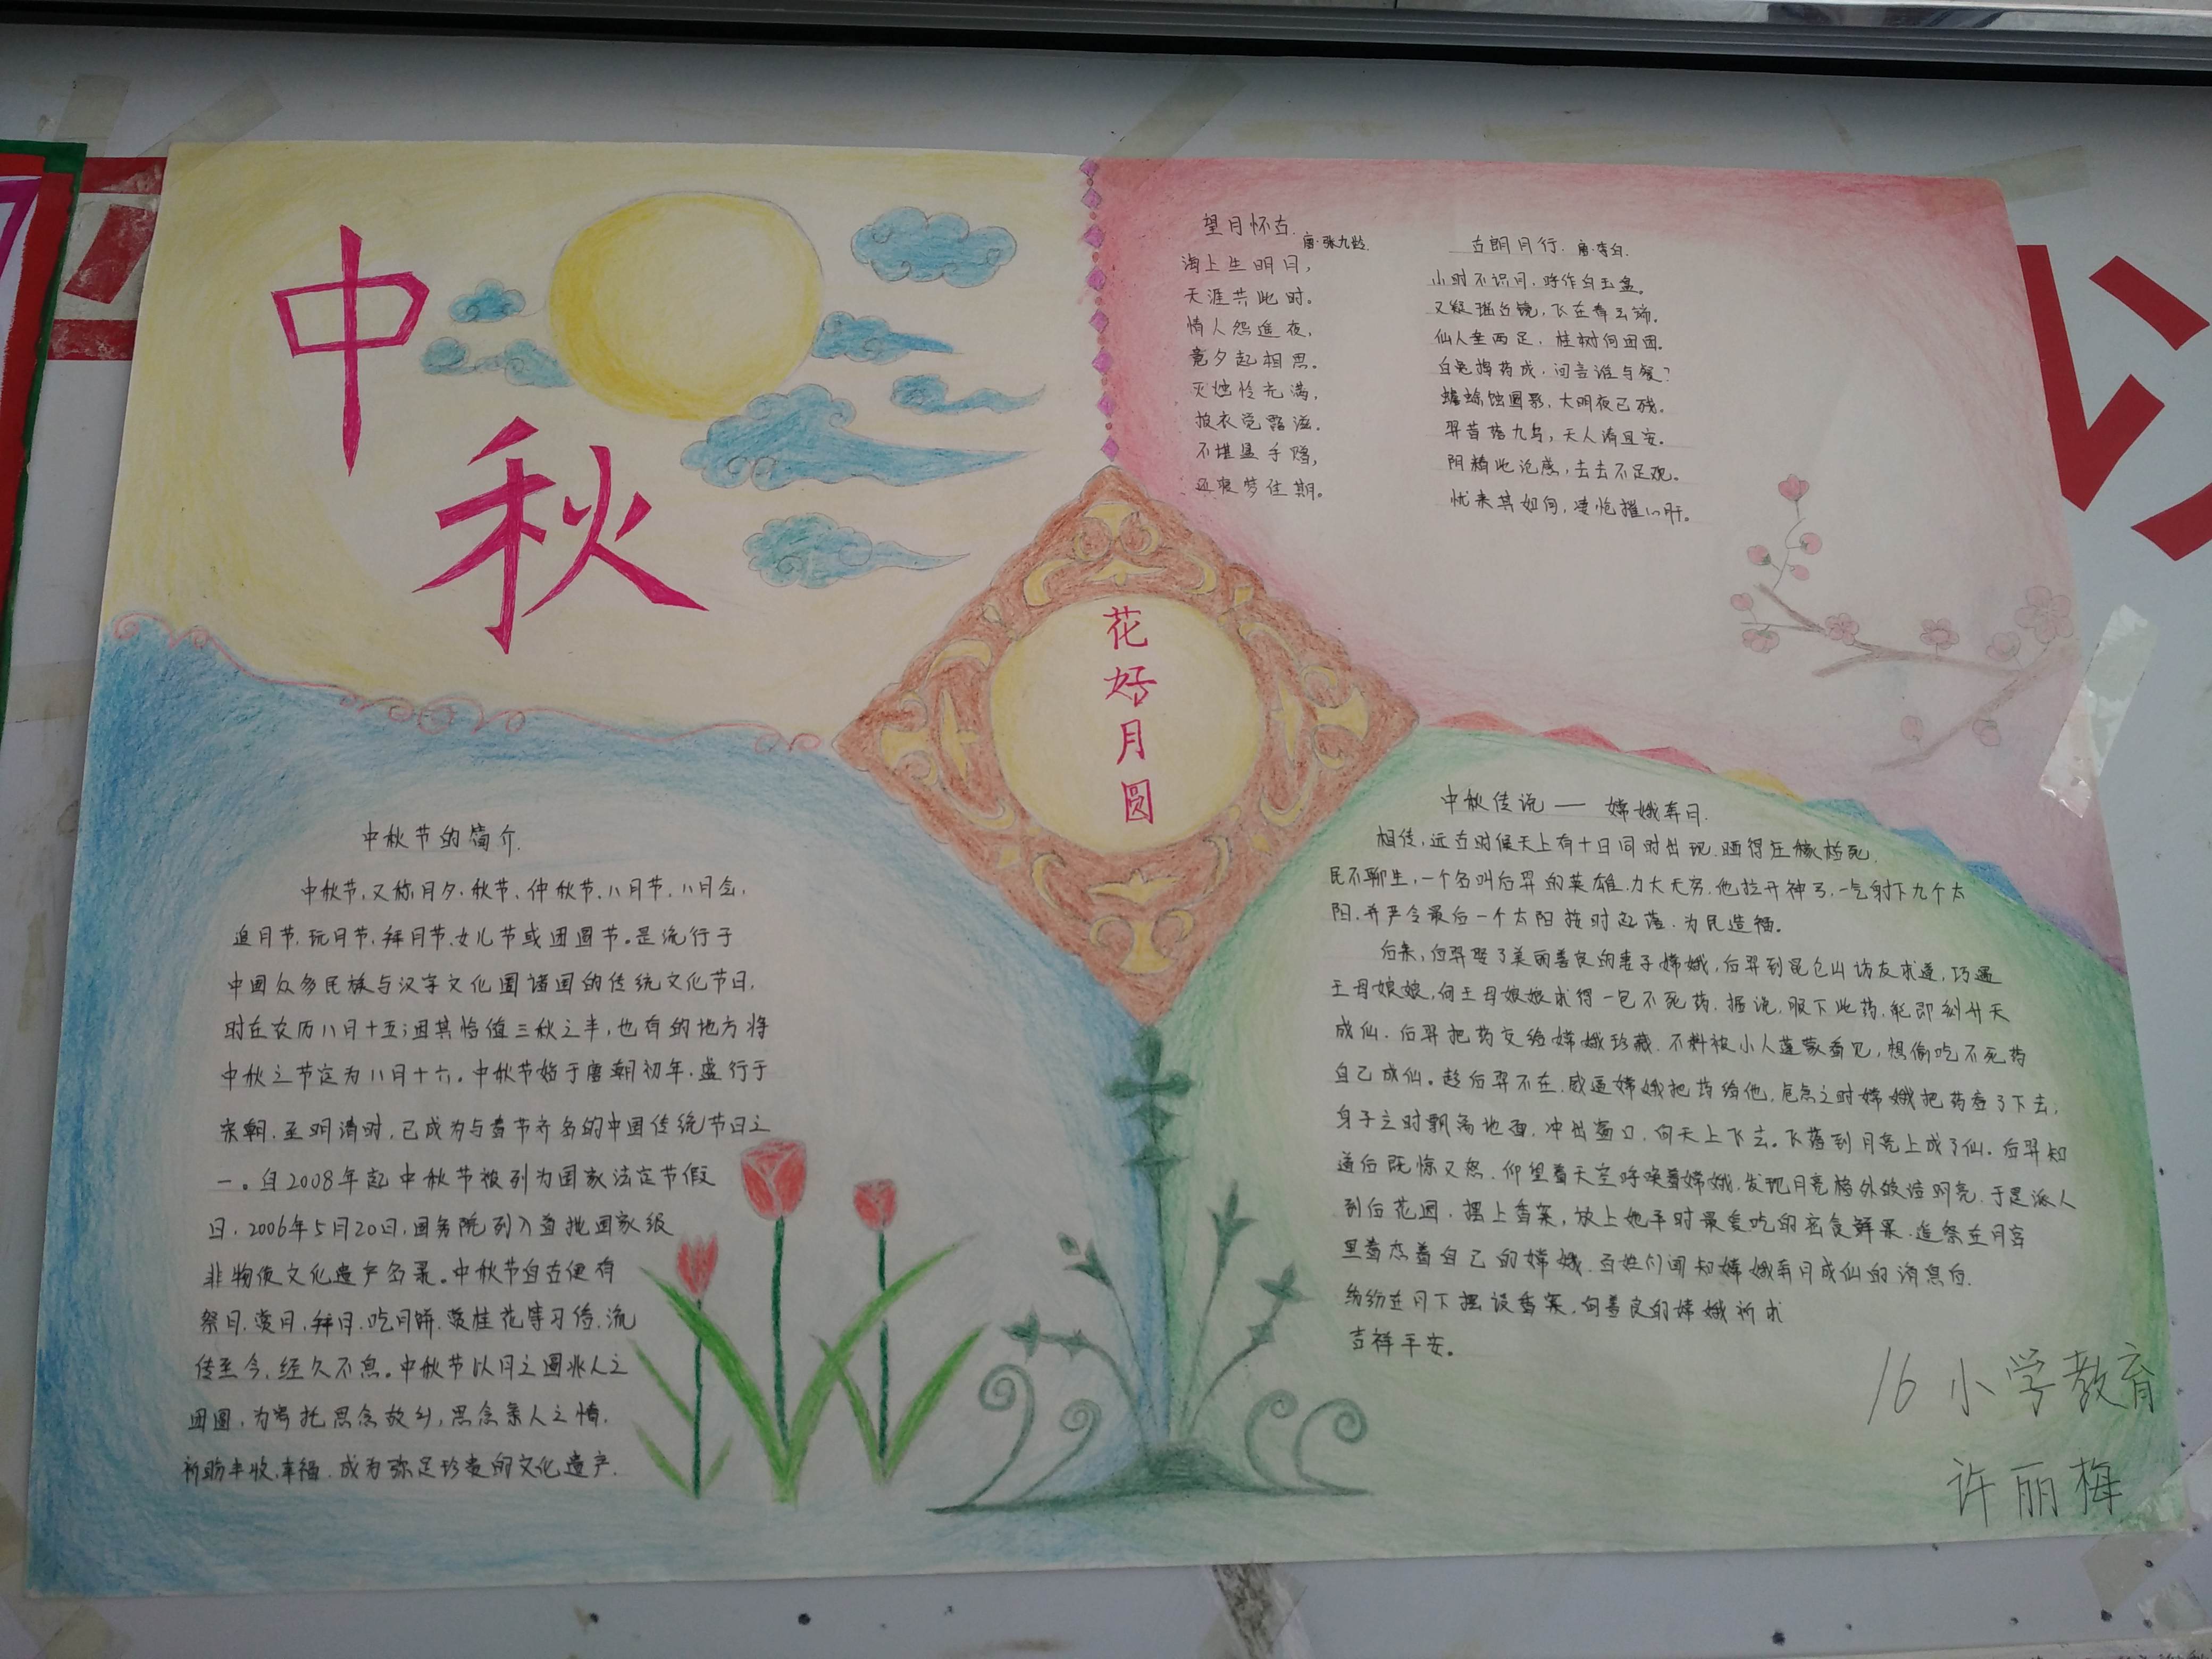 中
秋
望月怀古.
唐·张九龄.
海上生明月，
天涯共此时。
情人怨遥夜，
竟夕起相思。
灭烛怜光满，
披衣觉露滋。
不堪盈手赠，
还寝梦佳期。
古朗月行. 唐·李白.
小时不识月，呼作白玉盘。
又疑瑶台镜，飞在青云端。
仙人垂两足，桂树何团团。
白兔捣药成，问言谁与餐？
蟾蜍蚀圆影，大明夜已残。
羿昔落九乌，天人清且安。
阴精此沦惑，去去不足观。
忧来其如何，凄怆摧心肝。
花
好
月
圆
中秋节的简介.
中秋节，又称月夕、秋节、仲秋节、八月节、八月会、
追月节、玩月节、拜月节、女儿节或团圆节。是流行于
中国众多民族与汉字文化圈诸国的传统文化节日，
时在农历八月十五；因其恰值三秋之半，也有的地方将
中秋之节定为八月十六。中秋节始于唐朝初年，盛行于
宋朝，至明清时，已成为与春节齐名的中国传统节日之
一。自2008年起中秋节被列为国家法定节假
日，2006年5月20日，国务院列入首批国家级
非物质文化遗产名录。中秋节自古便有
祭月、赏月、拜月、吃月饼、赏桂花等习俗，流
传至今，经久不息。中秋节以月之圆兆人之
团圆，为寄托思念故乡，思念亲人之情，
祈盼丰收、幸福，成为弥足珍贵的文化遗产.
中秋传说 — 嫦娥奔月.
相传，远古时候天上有十日同时出现，晒得庄稼枯死，
民不聊生，一个名叫后羿的英雄，力大无穷，他拉开神弓，一气射下九个太
阳，并严令最后一个太阳按时起落，为民造福。
后来，后羿娶了美丽善良的妻子嫦娥，后羿到昆仑山访友求道，巧遇
王母娘娘，向王母娘娘求得一包不死药，据说，服下此药，能即刻升天
成仙，后羿把药交给嫦娥珍藏，不料被小人蓬蒙看见，想偷吃不死药
自己成仙。趁后羿不在，威逼嫦娥把药给他，危急之时嫦娥把药吞了下去，
身子立时飘离地面，冲出窗口，向天上飞去。飞落到月亮上成了仙。后羿知
道后既惊又怒，仰望着天空呼唤着嫦娥，发现月亮格外皎洁明亮，于是派人
到后花园，摆上香案，放上她平时最爱吃的密食鲜果，遥祭在月宫
里眷恋着自己的嫦娥，百姓们闻知嫦娥奔月成仙的消息后，
纷纷在月下摆设香案，向善良的嫦娥祈求
吉祥平安。
16 小学教育
许丽梅